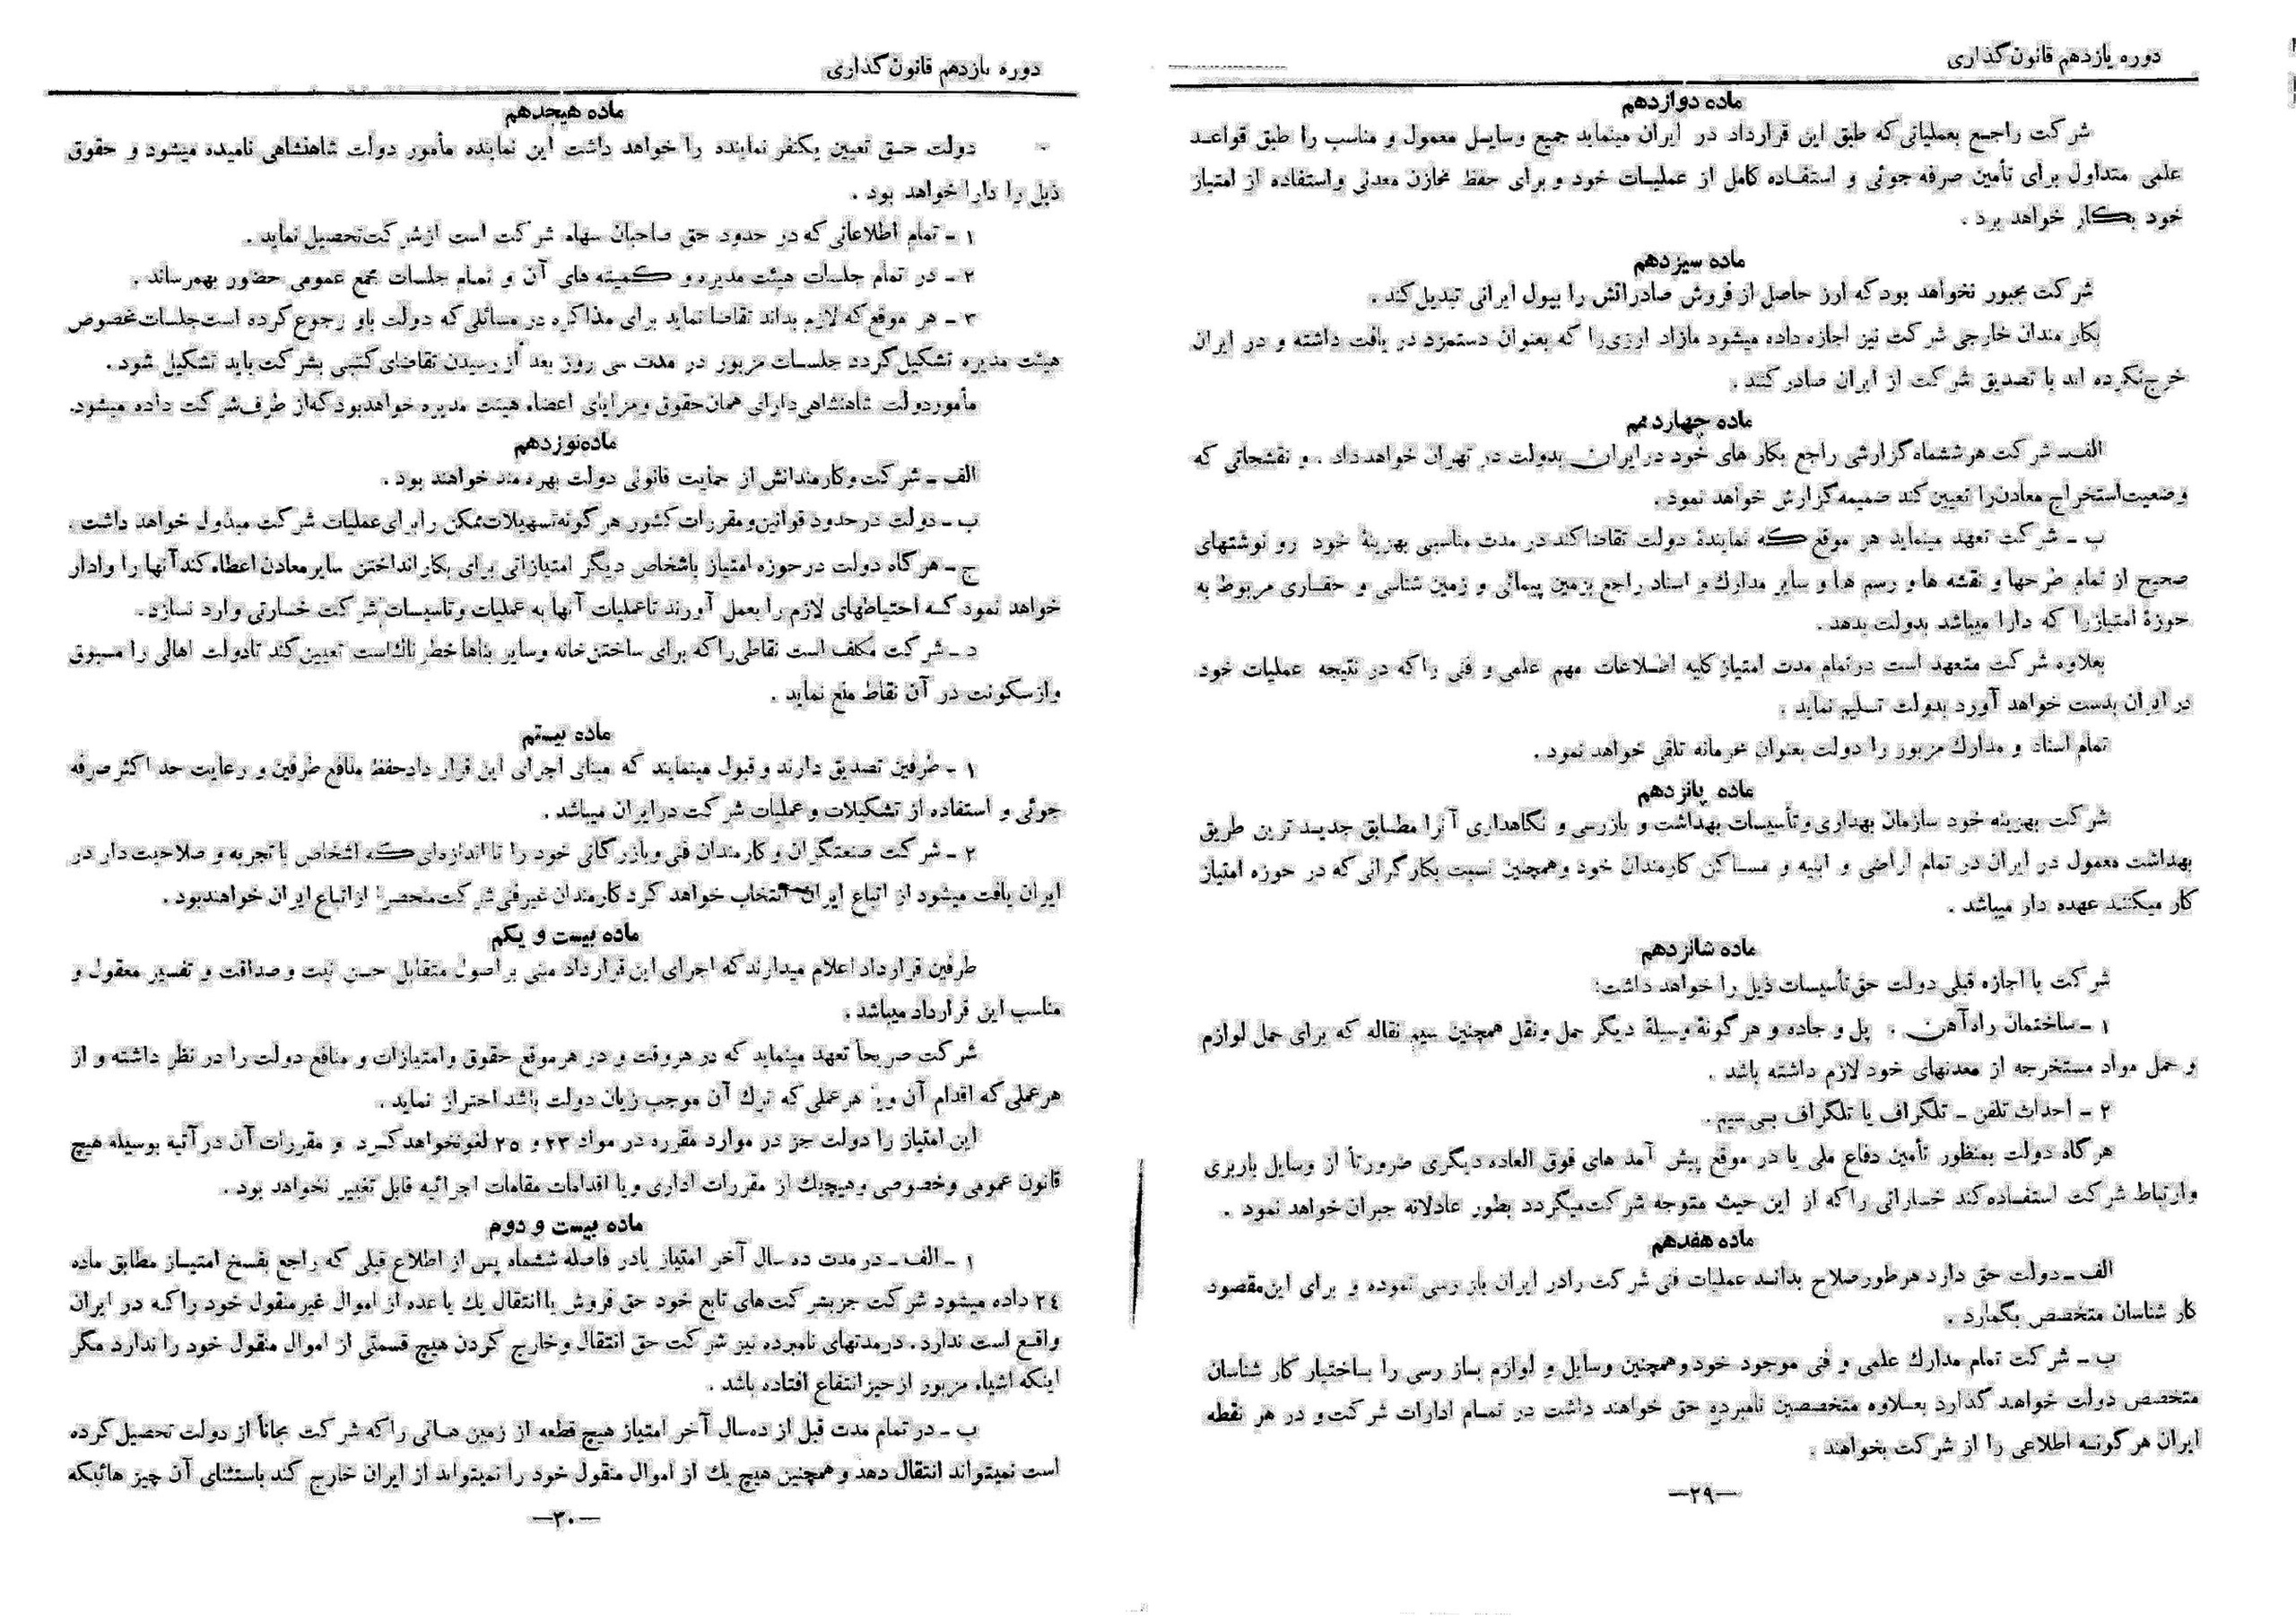 دوره یازدهم قانون‌گذاری
ماده دوازدهم
شرکت راجع بعملیاتی که طبق این قرارداد در ایران مینماید جمیع وسایل معمول و مناسب را طبق قواعد
علمی متداول برای تأمین صرفه جوئی و استفاده کامل از عملیات خود و برای حفظ مخازن معدنی و استفاده از امتیاز
خود بکار خواهد برد .
ماده سیزدهم
شرکت مجبور نخواهد بود که ارز حاصل از فروش صادراتش را بپول ایرانی تبدیل کند .
بکارمندان خارجی شرکت نیز اجازه داده میشود مازاد ارزی را که بعنوان دستمزد دریافت داشته و در ایران
خرج نکرده اند با تصدیق شرکت از ایران صادر کنند .
ماده چهاردهم
الف ـ شرکت هر ششماه گزارشی راجع بکار های خود در ایران بدولت در تهران خواهد داد . و نقشجاتی که
وضعیت استخراج معادن را تعیین کند ضمیمه گزارش خواهد نمود .
ب ـ شرکت تعهد مینماید هر موقع که نمایندهٔ دولت تقاضا کند در مدت مناسبی بهزینهٔ خود رو نوشتهای
صحیح از تمام طرحها و نقشه ها و رسم ها و سایر مدارك و اسناد راجع بزمین پیمائی و زمین شناسی و حفاری مربوط به
حوزهٔ امتیاز را که دارا میباشد بدولت بدهد .
بعلاوه شرکت متعهد است در تمام مدت امتیاز کلیه اطلاعات مهم علمی و فنی را که در نتیجه عملیات خود
در ایران بدست خواهد آورد بدولت تسلیم نماید .
تمام اسناد و مدارك مزبور را دولت بعنوان محرمانه تلقی خواهد نمود .
ماده پانزدهم
شرکت بهزینه خود سازمان بهداری و تأسیسات بهداشت و بازرسی و نگاهداری آنرا مطابق جدید ترین طریق
بهداشت معمول در ایران در تمام اراضی و ابنیه و مساکن کارمندان خود و همچنین نسبت بکارگرانی که در حوزه امتیاز
کار میکنند عهده دار میباشد .
ماده شانزدهم
شرکت با اجازه قبلی دولت حق تأسیسات ذیل را خواهد داشت:
۱ ـ ساختمان راه‌آهن . پل و جاده و هر گونهٔ وسیلهٔ دیگر حمل و نقل همچنین سیم نقاله که برای حمل لوازم
و حمل مواد مستخرجه از معدنهای خود لازم داشته باشد .
۲ ـ احداث تلفن ـ تلگراف یا تلگراف بی سیم .
هر گاه دولت بمنظور تأمین دفاع ملی یا در موقع پیش آمد های فوق العاده دیگری ضرورتاً از وسایل باربری
و ارتباط شرکت استفاده کند خساراتی را که از این حیث متوجه شرکت میگردد بطور عادلانه جبران خواهد نمود .
ماده هفدهم
الف ـ دولت حق دارد هرطور صلاح بداند عملیات فنی شرکت را در ایران بازرسی نموده و برای این مقصود
کار شناسان متخصص بگمارد .
ب ـ شرکت تمام مدارك علمی و فنی موجود خود و همچنین وسایل و لوازم بازرسی را باختیار کار شناسان
متخصص دولت خواهد گذارد بعلاوه متخصصین نامبرده حق خواهند داشت در تمام ادارات شرکت و در هر نقطه
ایران هر گونه اطلاعی را از شرکت بخواهند .
—۲۹—
دوره یازدهم قانون‌گذاری
ماده هیجدهم
دولت حق تعیین یکنفر نماینده را خواهد داشت این نماینده مأمور دولت شاهنشاهی نامیده میشود و حقوق
ذیل را دارا خواهد بود .
۱ ـ تمام اطلاعاتی که در حدود حق صاحبان سهام شرکت است از شرکت تحصیل نماید .
۲ ـ در تمام جلسات هیئت مدیره و کمیته های آن و تمام جلسات مجمع عمومی حضور بهمرساند .
۳ ـ هر موقع که لازم بداند تقاضا نماید برای مذاکره در مسائلی که دولت باو رجوع کرده است جلسات مخصوص
هیئت مدیره تشکیل گردد جلسات مزبور در مدت سی روز بعد از رسیدن تقاضای کتبی بشرکت باید تشکیل شود .
مأمور دولت شاهنشاهی دارای همان حقوق و مزایای اعضاء هیئت مدیره خواهد بود که از طرف شرکت داده میشود.
ماده نوزدهم
الف ـ شرکت و کارمندانش از حمایت قانونی دولت بهره مند خواهند بود .
ب ـ دولت در حدود قوانین و مقررات کشور هر گونه تسهیلات ممکن را برای عملیات شرکت مبذول خواهد داشت .
ج ـ هر گاه دولت در حوزه امتیاز باشخاص دیگر امتیازاتی برای بکار انداختن سایر معادن اعطاء کند آنها را وادار
خواهد نمود که احتیاطهای لازم را بعمل آورند تا عملیات آنها به عملیات و تاسیسات شرکت خسارتی وارد نسازد .
د ـ شرکت مکلف است نقاطی را که برای ساختن خانه و سایر بناها خطرناك است تعیین کند تا دولت اهالی را مسبوق
و از سکونت در آن نقاط منع نماید .
ماده بیستم
۱ ـ طرفین تصدیق دارند و قبول مینمایند که مبنای اجرای این قرار داد حفظ منافع طرفین و رعایت حد اکثر صرفه
جوئی و استفاده از تشکیلات و عملیات شرکت در ایران میباشد .
۲ ـ شرکت صنعتگران و کارمندان فنی و بازرگانی خود را تا اندازه‌ای که اشخاص با تجربه و صلاحیت دار در
ایران یافت میشود از اتباع ایران انتخاب خواهد کرد کارمندان غیر فنی شرکت منحصراً از اتباع ایران خواهند بود .
ماده بیست و یکم
طرفین قرارداد اعلام میدارند که اجرای این قرارداد مبنی بر اصول متقابل حسن نیت و صداقت و تفسیر معقول و
مناسب این قرارداد میباشد .
شرکت صریحاً تعهد مینماید که در هر وقت و در هر موقع حقوق و امتیازات و منافع دولت را در نظر داشته و از
هر عملی که اقدام آن و یا هر عملی که ترك آن موجب زیان دولت باشد احتراز نماید .
این امتیاز را دولت جز در موارد مقرره در مواد ۲۳ و ۲۵ لغو نخواهد کرد و مقررات آن در آتیه بوسیله هیچ
قانون عمومی و خصوصی و هیچیك از مقررات اداری و یا اقدامات مقامات اجرائیه قابل تغییر نخواهد بود .
ماده بیست و دوم
۱ ـ الف ـ در مدت ده سال آخر امتیاز یا در فاصله ششماه پس از اطلاع قبلی که راجع بفسخ امتیاز مطابق ماده
۲٤ داده میشود شرکت جز بشرکت‌های تابع خود حق فروش یا انتقال یك یا عده از اموال غیر منقول خود را که در ایران
واقع است ندارد . در مدتهای نامبرده نیز شرکت حق انتقال و خارج کردن هیچ قسمتی از اموال منقول خود را ندارد مگر
اینکه اشیاء مزبور از حیز انتفاع افتاده باشد .
ب ـ در تمام مدت قبل از ده سال آخر امتیاز هیچ قطعه از زمین هائی را که شرکت مجاناً از دولت تحصیل کرده
است نمیتواند انتقال دهد و همچنین هیچ یك از اموال منقول خود را نمیتواند از ایران خارج کند باستثنای آن چیز هائیکه
—۳۰—